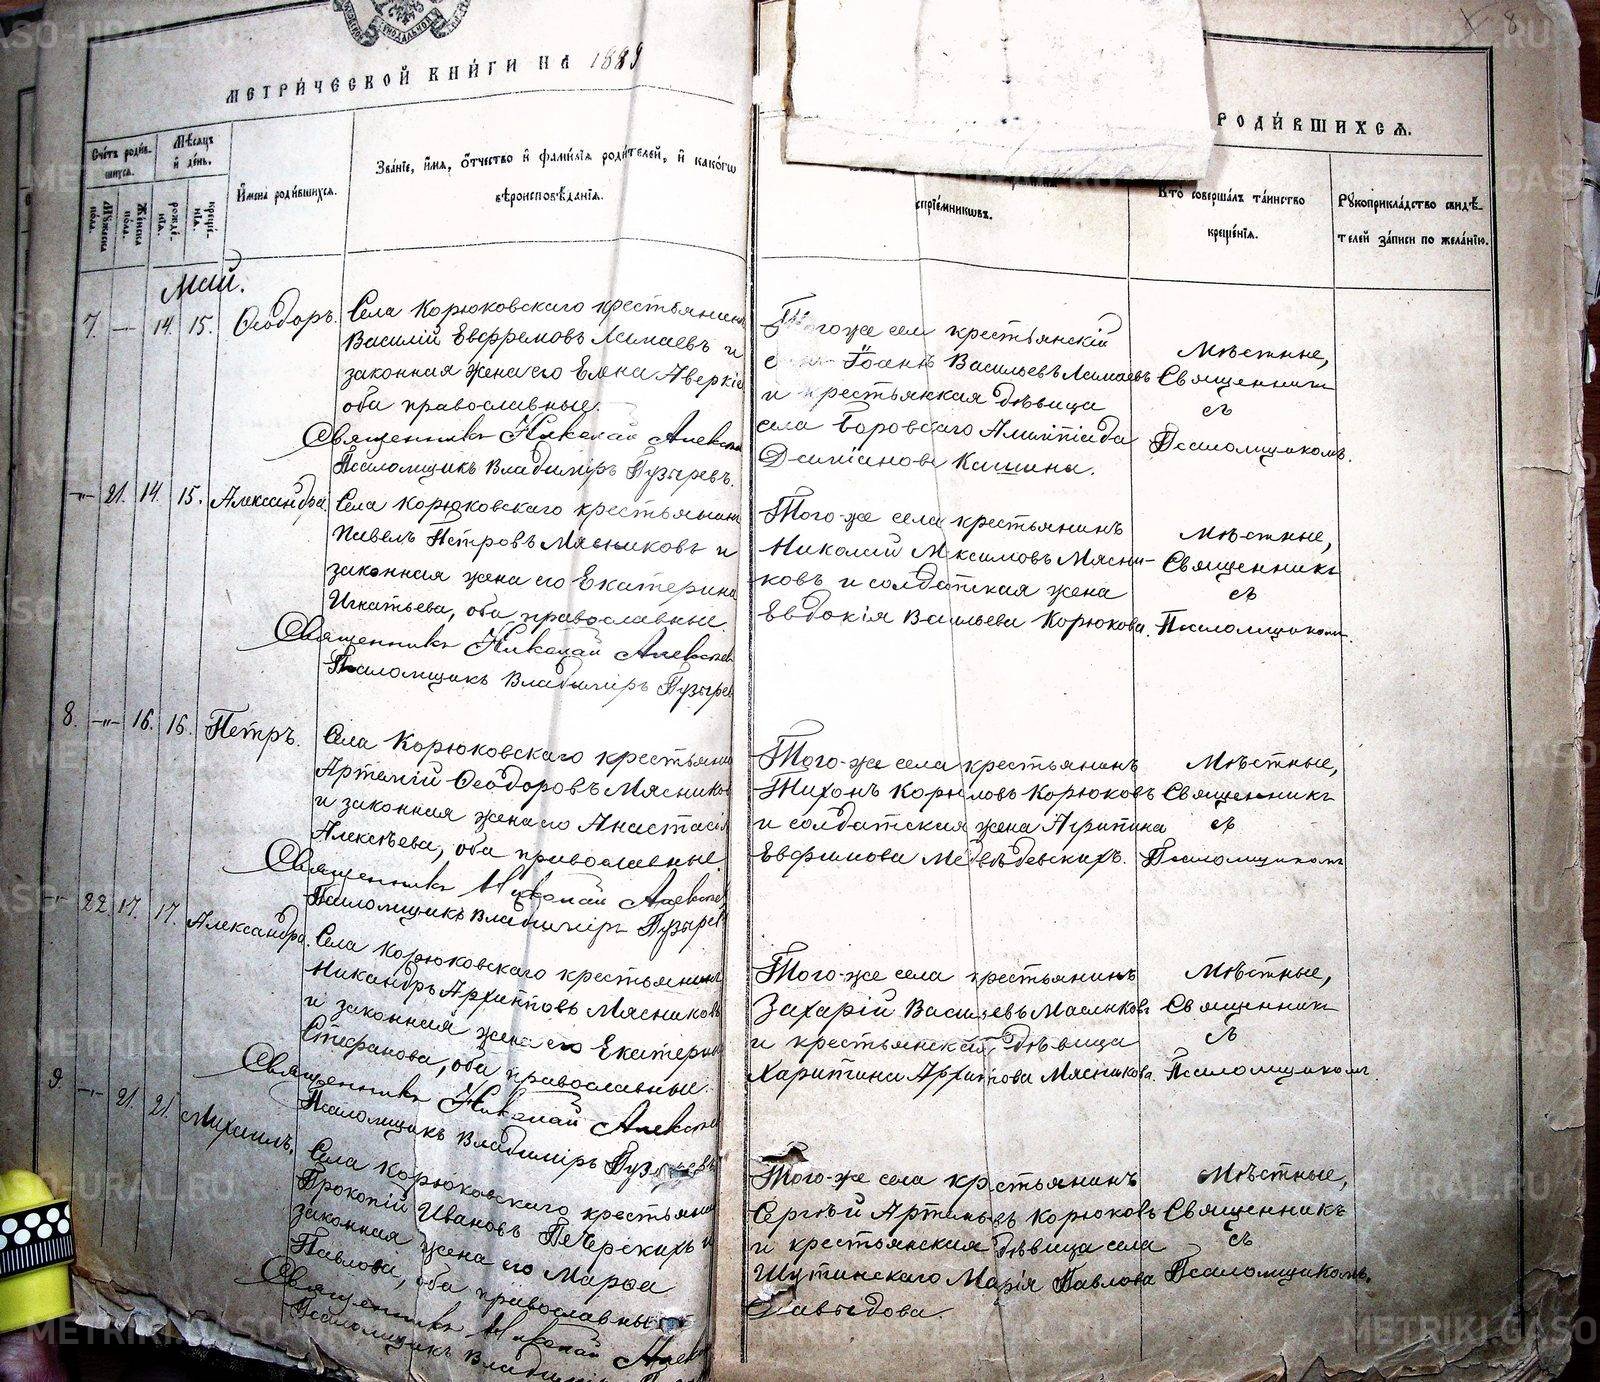 МЕТРИ́ЧЕСКОЙ КНИ́ГИ НА 1889
РОДИ́ВШИХСѦ.
8
Сче́тъ роди́в-
шихся.
Мѣсяцъ
и̂ де́нь.
Мꙋ́жеска
пола.
Же́нска
пола.
рожде́-
нїѧ.
креще́-
нїѧ.
И҆мена роди́вшихся.
Зва́нїе, и҆мя, ѻ҆тчество и҆ фами́лїя роди́телей, и҆ како́гѡ
вѣроисповѣ́данїя.
спрїе́мникѡвъ.
Кто̀ соверша́лъ та́инство
креще́нїя.
Рꙋкоприкла́дство свидѣ́-
телей за́писи по жела́нїю.
Май.
7. — 14. 15. Ѳеодоръ.
Села Корюковскаго крестьянинъ
Василій Евфремовъ и
законная жена его Елена Аверкіева
оба православные.
Священникъ Николай
Псаломщикъ Владиміръ Пузыревъ.
Того же села крестьянскій
Іоаннъ Васильевъ
и крестьянская дѣвица
села Боровскаго
Мѣстные,
Священникъ
съ
Псаломщикомъ.
-"- 21. 14. 15. Александра.
Села Корюковскаго крестьянинъ
Павелъ Петровъ Мясниковъ и
законная жена его Екатерина
Игнатьева, оба православные.
Священникъ Николай
Псаломщикъ Владиміръ Пузырев
Того-же села крестьянинъ
Николай Максимовъ Мясни-
ковъ и солдатская жена
Евдокія Васильева Корюкова.
Мѣстные,
Священникъ
съ
Псаломщикомъ.
8. -"- 16. 16. Петръ.
Села Корюковскаго крестьянин
Артемій Ѳеодоровъ Мясников
и законная жена его Анастасія
Алексѣева, оба православные.
Священникъ Николай
Псаломщикъ Владиміръ Пузырев
Того-же села крестьянинъ
Тихонъ Корниловъ Корюковъ
и солдатская жена Агрипина
Евфимова Медвѣдевскихъ.
Мѣстные,
Священникъ
съ
Псаломщикомъ
-"- 22. 17. 17. Александра.
Села Корюковскаго крестьянинъ
Никандръ Архиповъ Мясниковъ
и законная жена его Екатерина
Стефанова, оба православные.
Священникъ Николай
Псаломщикъ Владиміръ Пузыревъ
Того-же села крестьянинъ
Захарій Васильевъ
и крестьянская дѣвица
Харитина Архипова Мясникова.
Мѣстные,
Священникъ
съ
Псаломщикомъ.
9. -"- 21. 21. Михаилъ.
Села Корюковскаго крестьянин
Прокопій Ивановъ Печерскихъ и
законная жена его Марѳа
Павлова, оба православные
Священникъ Николай
Псаломщикъ Владимір
Того-же села крестьянинъ
Сергѣй Артемьевъ Корюковъ
и крестьянская дѣвица села
Шутинскаго Марія Павлова
Давыдова.
Мѣстные,
Священникъ
съ
Псаломщикомъ.
METRIKI.GASO-URAL.RU